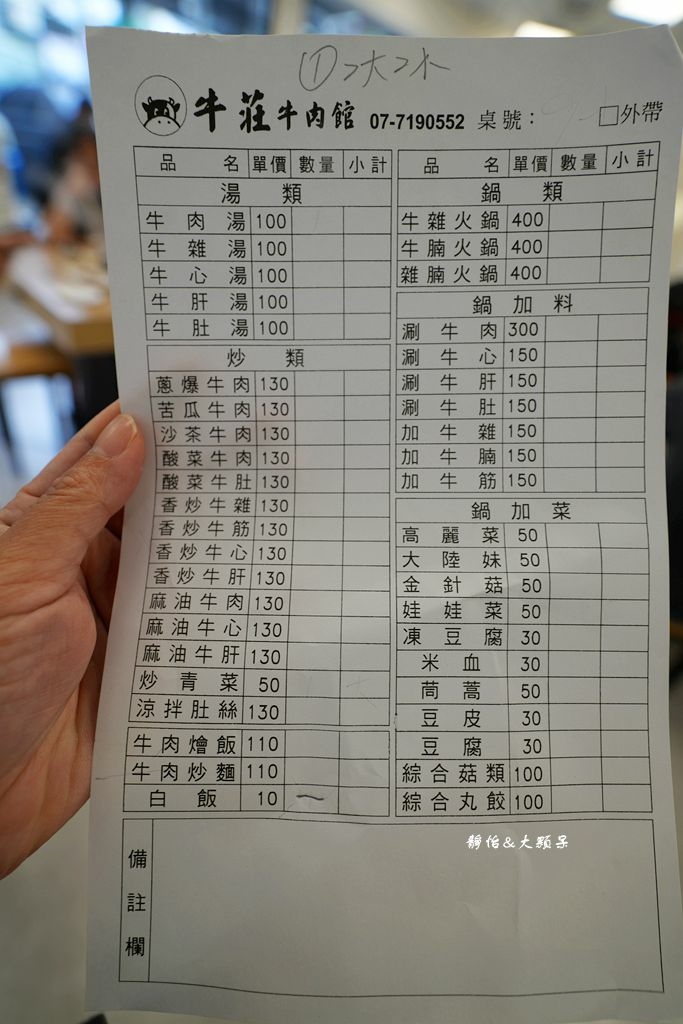 ①
牛莊牛肉館 07-7190552 桌號： □外帶
品名 單價 數量 小計
湯類
牛肉湯 100
牛雜湯 100
牛心湯 100
牛肝湯 100
牛肚湯 100
炒類
蔥爆牛肉 130
苦瓜牛肉 130
沙茶牛肉 130
酸菜牛肉 130
酸菜牛肚 130
香炒牛雜 130
香炒牛筋 130
香炒牛心 130
香炒牛肝 130
麻油牛肉 130
麻油牛心 130
麻油牛肝 130
炒青菜 50
涼拌肚絲 130
牛肉燴飯 110
牛肉炒麵 110
白飯 10 一
品名 單價 數量 小計
鍋類
牛雜火鍋 400
牛腩火鍋 400
雜腩火鍋 400
鍋加料
涮牛肉 300
涮牛心 150
涮牛肝 150
涮牛肚 150
加牛雜 150
加牛腩 150
加牛筋 150
鍋加菜
高麗菜 50
大陸妹 50
金針菇 50
娃娃菜 50
凍豆腐 30
米血 30
茼蒿 50
豆皮 30
豆腐 30
綜合菇類 100
綜合丸餃 100
備註欄
靜怡&大顆呆